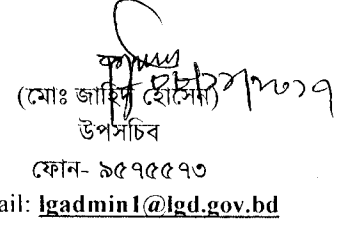 (মোঃ জাহিদ হোসেন)
উপসচিব
ফোন- ৯৫৭৫৫৭৩
ail: lgadmin1@lgd.gov.bd